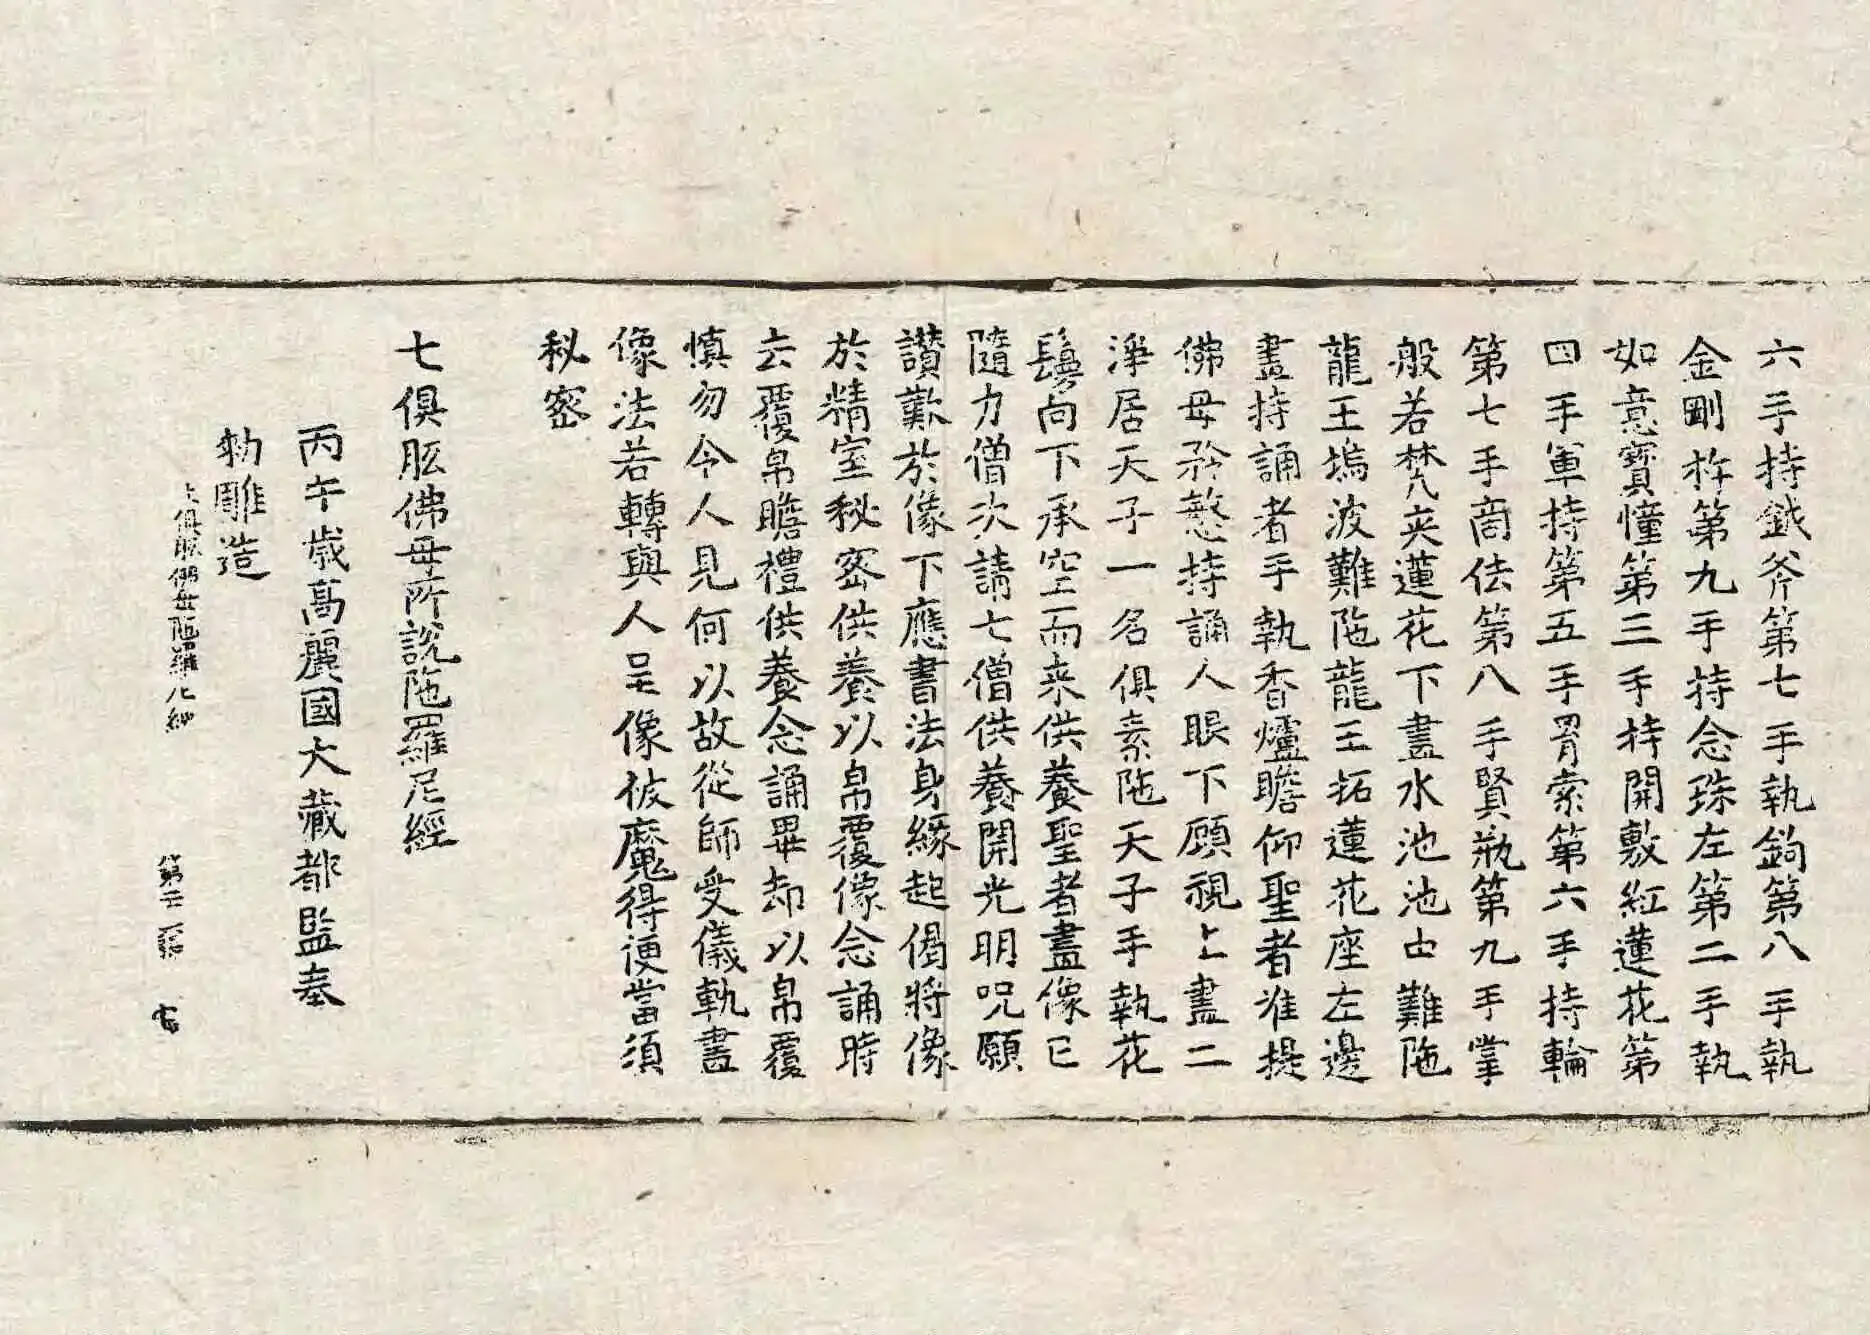 六手持鉞斧第七手執鉤第八手執
金剛杵第九手持念珠左第二手執
如意寶幢第三手持開敷紅蓮花第
四手軍持第五手罥索第六手持輪
第七手商佉第八手賢瓶第九手掌
般若梵夾蓮花下畫水池池中難陁
龍王塢波難陁龍王拓蓮花座左邊
畫持誦者手執香爐瞻仰聖者准提
佛母矜愍持誦人眼下顧視上畫二
淨居天子一名俱素陁天子手執花
鬘向下承空而来供養聖者畫像已
隨力僧次請七僧供養開光明呪願
讃歎於像下應書法身緣起偈將像
於精室秘密供養以帛覆像念誦時
去覆帛瞻禮供養念誦畢却以帛覆
慎勿令人見何以故從師受儀軌畫
像法若轉與人呈像彼魔得便當須
秘密
七俱胝佛母所說陁羅尼經
丙午歲高麗國大藏都監奉
勑雕造
七俱胝佛母陁羅尼經
第 張